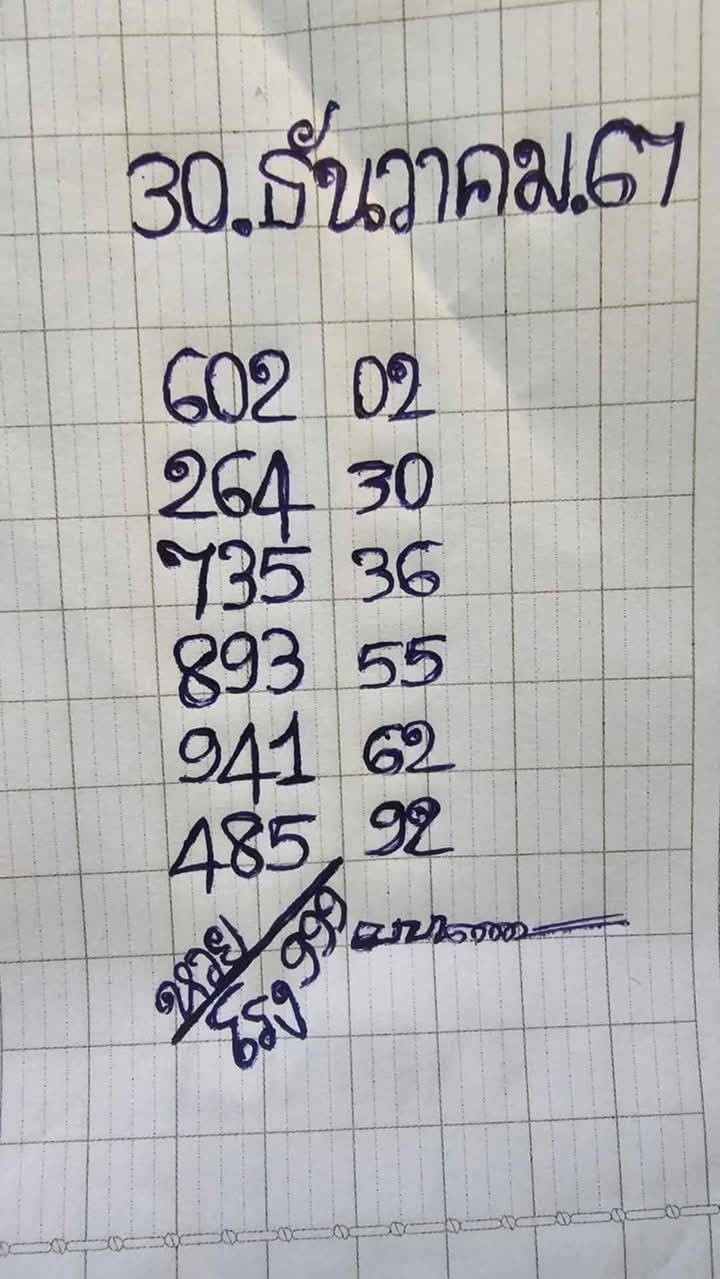 30.ธันวาคม.67
602 02
264 30
735 36
893 55
941 62
485 92
หวย
โรง 999